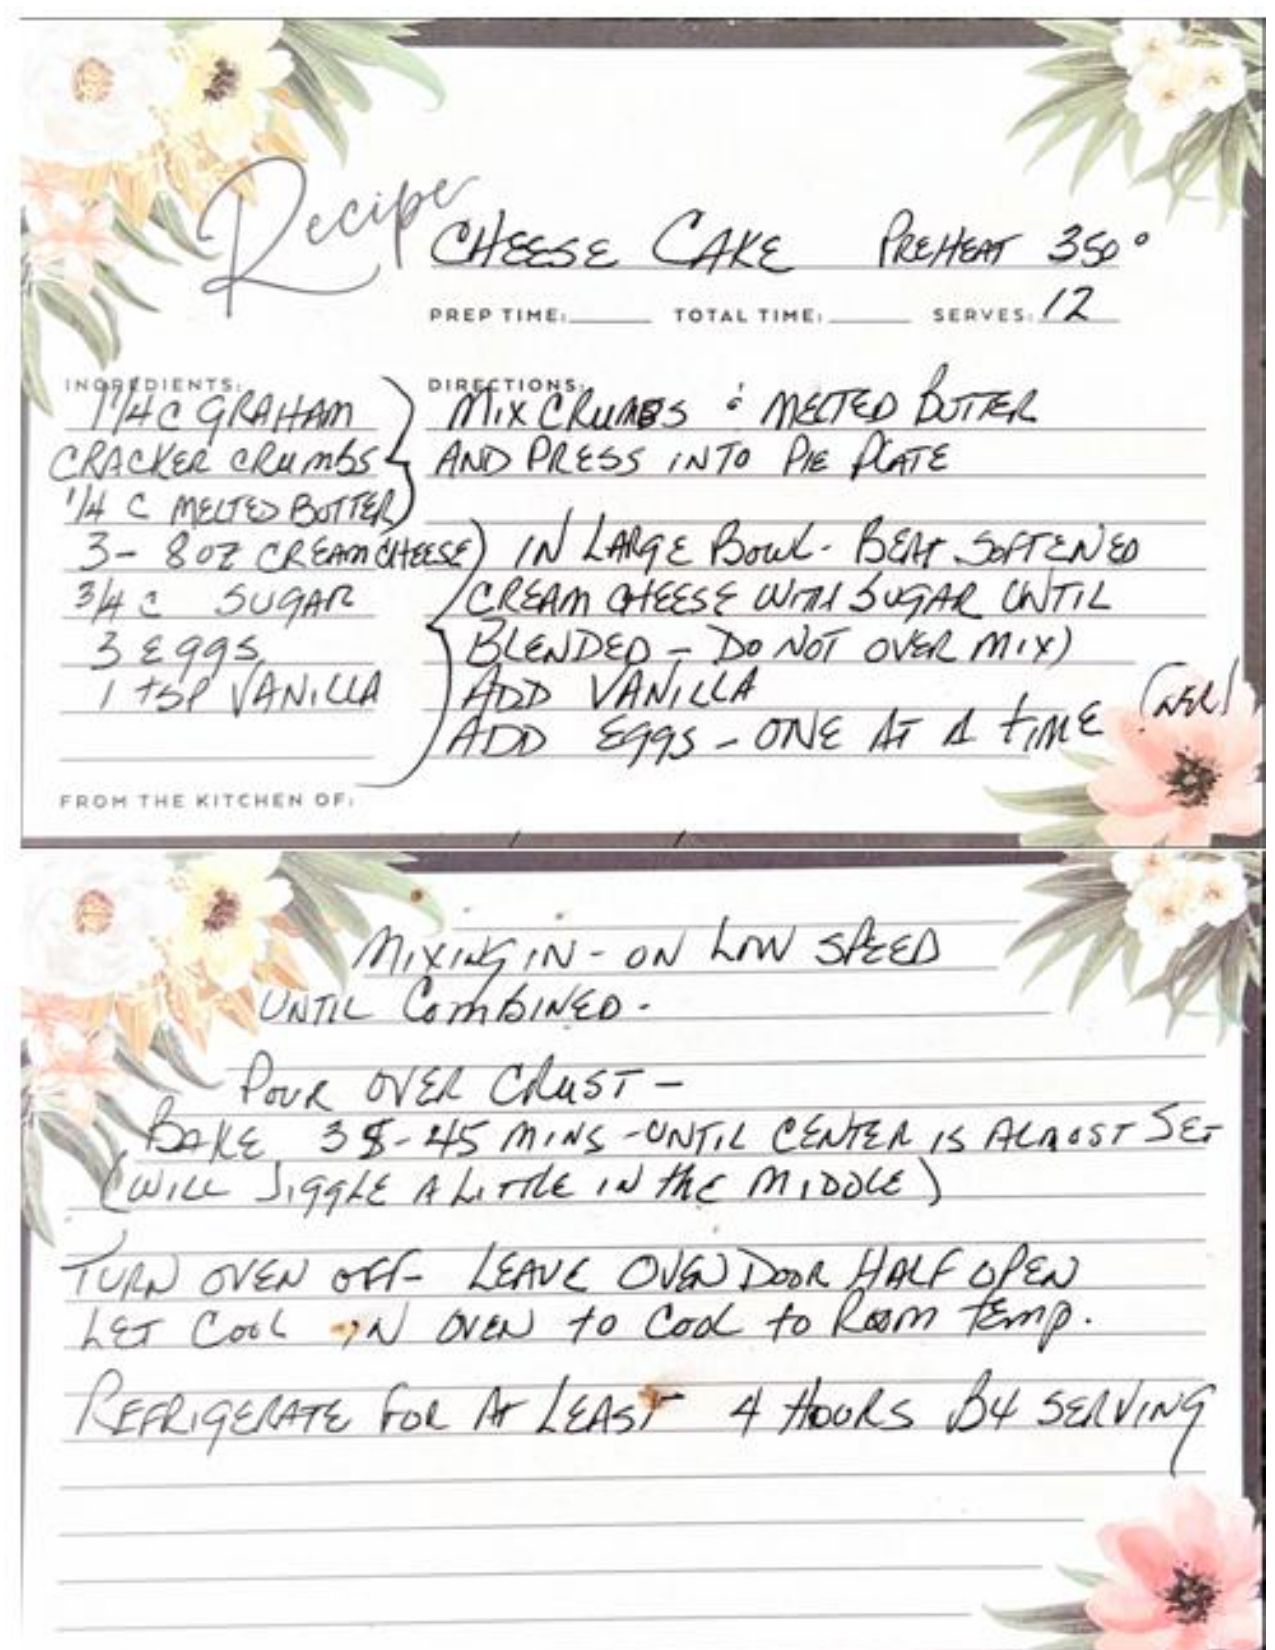 Recipe
CHEESE CAKE PREHEAT 350°
PREP TIME: TOTAL TIME: SERVES: 12
INGREDIENTS:
1 1/4 C GRAHAM
CRACKER CRUMBS
1/4 C MELTED BUTTER
3 - 8 OZ CREAM CHEESE
3/4 C SUGAR
3 EGGS
1 tSP VANILLA
DIRECTIONS:
MIX CRUMBS & MELTED BUTTER
AND PRESS INTO PIE PLATE
IN LARGE BOWL - BEAT SOFTENED
CREAM CHEESE WITH SUGAR UNTIL
BLENDED - DO NOT OVER MIX)
ADD VANILLA
ADD EGGS - ONE AT A tIME
FROM THE KITCHEN OF:
MIXING IN - ON LOW SPEED
UNTIL COMBINED.
POUR OVER CRUST -
BAKE 35-45 MINS - UNTIL CENTER IS ALMOST SET
(WILL JIGGLE A LITTLE IN thE MIDDLE)
TURN OVEN OFF - LEAVE OVEN DOOR HALF OPEN
LET COOL IN OVEN to COOL to ROOM tEmp.
REFRIGERATE FOR At LEAST 4 HOURS B4 SERVING